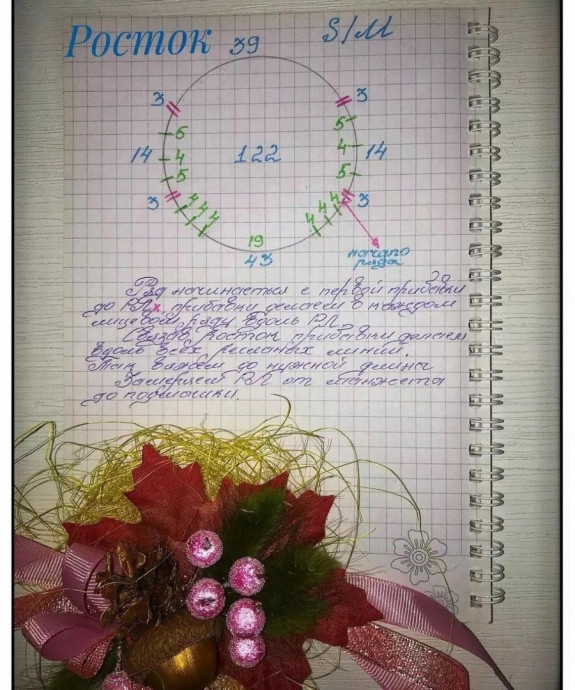 Росток
39
S/M
3
3
6
5
14
4
122
4
14
5
5
3
3
4
4
4
4
4
4
19
43
начало
ряда
Ряд начинается с первой прибавки
до РЛ, прибавки делаем в каждом
лицевом ряду вдоль РЛ.
Связав росток, прибавки делаем
вдоль всех регланных линий.
Так вяжем до нужной длины
Замеряем РЛ от манжета
до подмышки.